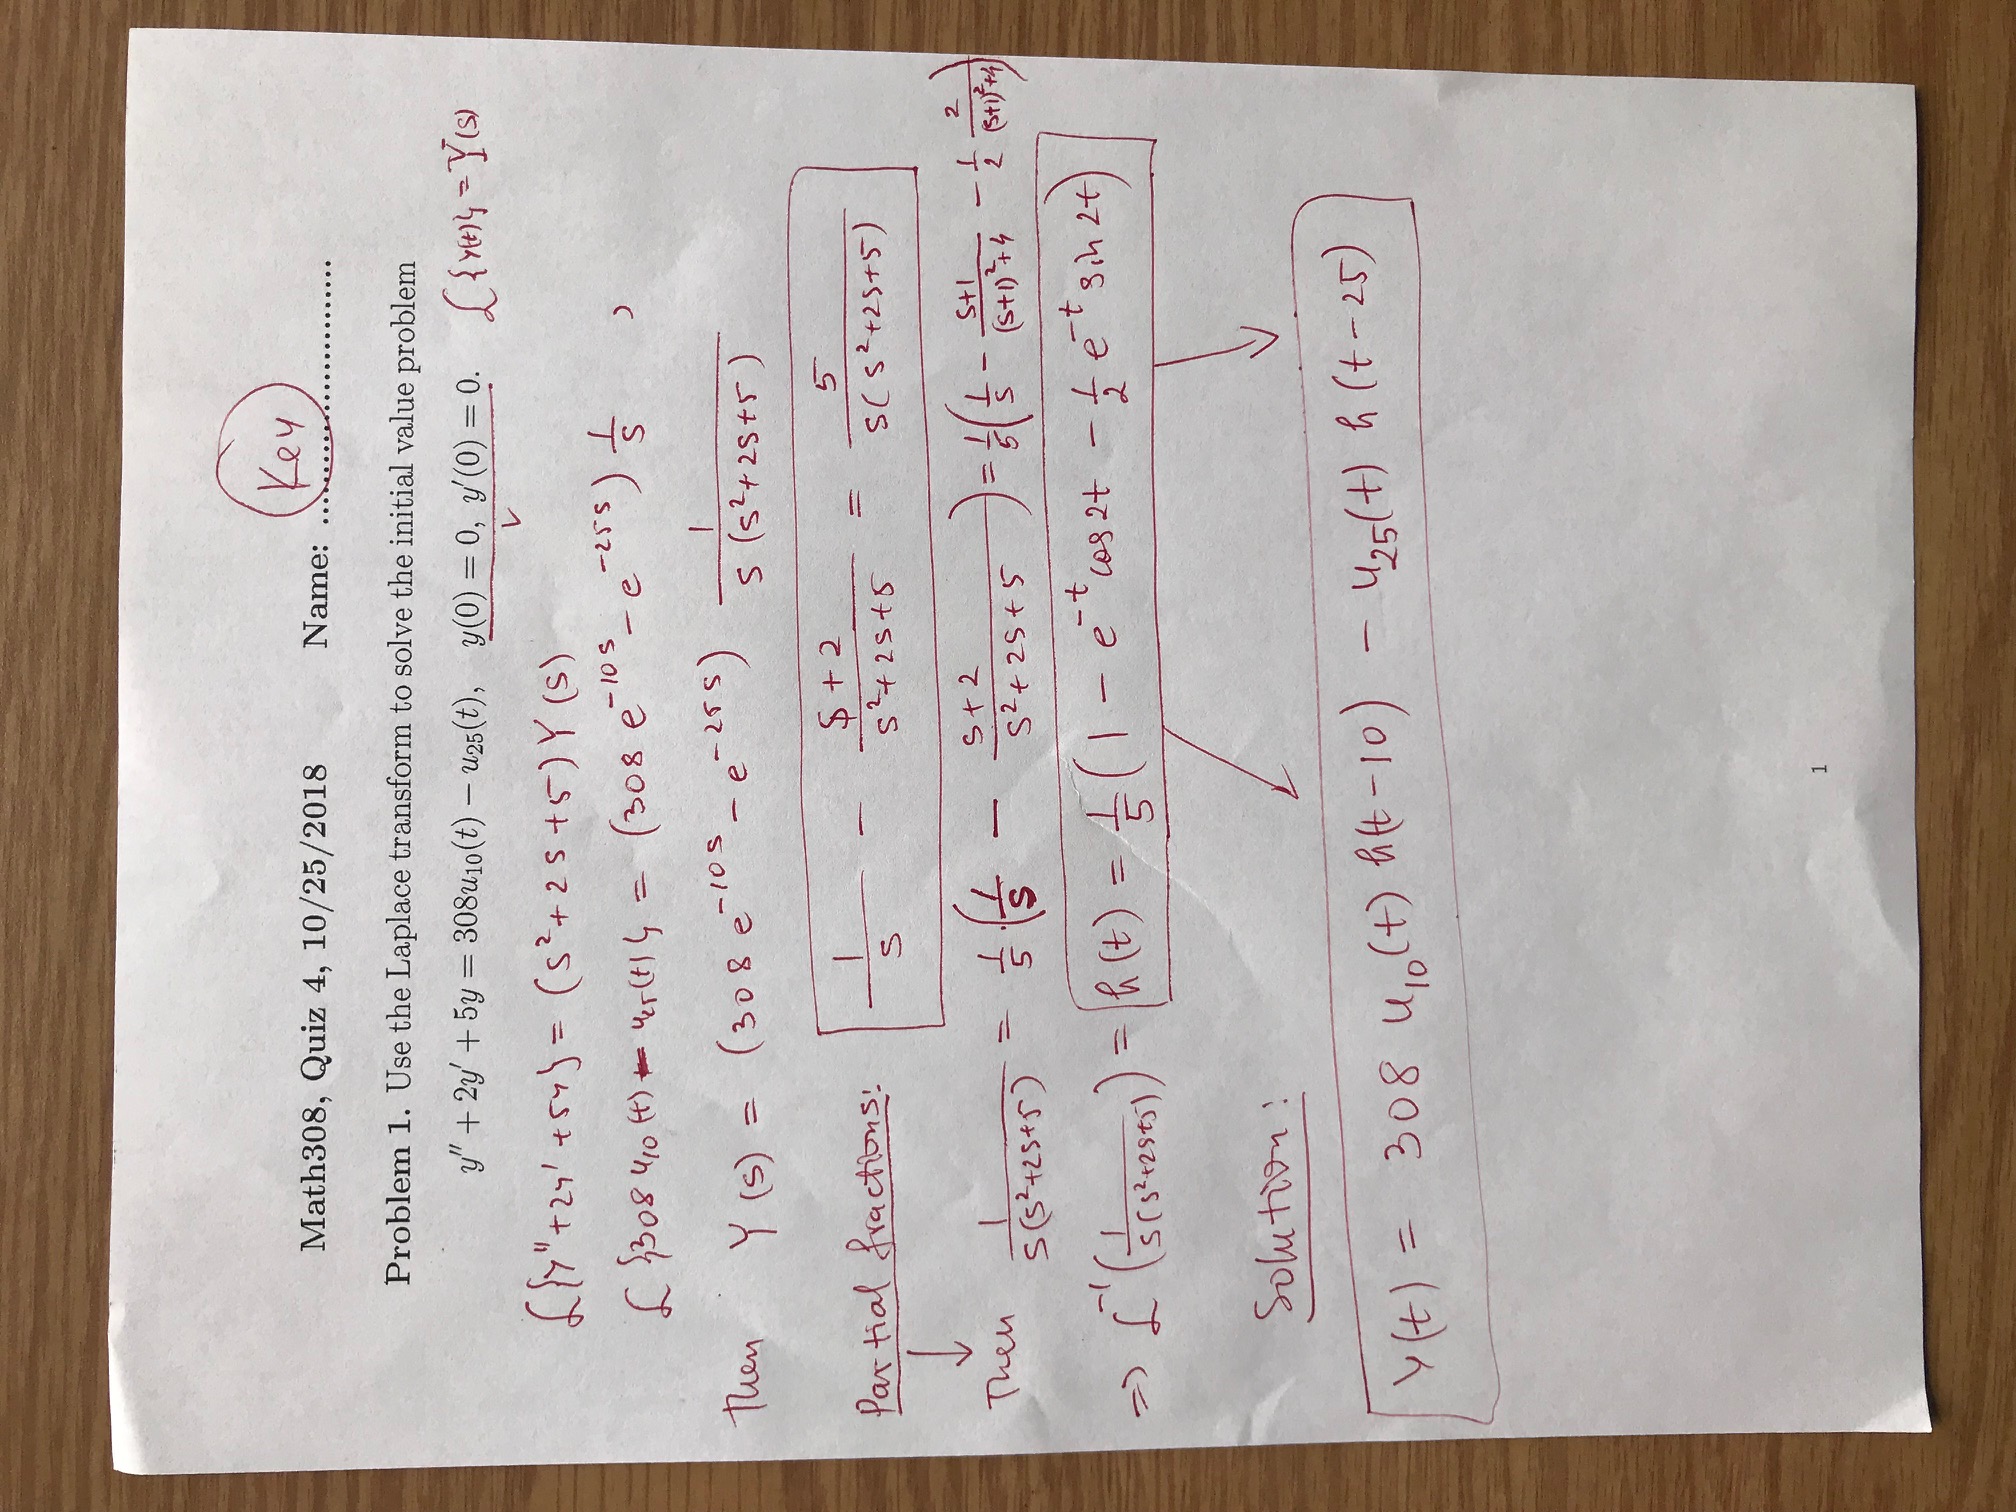 Key
Math308, Quiz 4, 10/25/2018 Name: ................................
Problem 1. Use the Laplace transform to solve the initial value problem
y″ + 2y′ + 5y = 308u₁₀(t) − u₂₅(t), y(0) = 0, y′(0) = 0. ℒ{y(t)} = Y(s)
ℒ{y″+2y′+5y} = (s²+2s+5)Y(s)
ℒ{308 u₁₀(t) − u₂₅(t)} = (308 e^{-10s} − e^{-25s}) 1/s ,
Then Y(s) = (308 e^{-10s} − e^{-25s}) 1/(s(s²+2s+5))
Partial fractions: 1/s − (s+2)/(s²+2s+5) = 5/(s(s²+2s+5))
Then 1/(s(s²+2s+5)) = 1/5 (1/s − (s+2)/(s²+2s+5)) = 1/5 (1/s − (s+1)/((s+1)²+4) − 1/2 2/((s+1)²+4))
⇒ ℒ⁻¹(1/(s(s²+2s+5))) = h(t) = 1/5 (1 − e^{-t} cos 2t − 1/2 e^{-t} sin 2t)
Solution:
y(t) = 308 u₁₀(t) h(t−10) − u₂₅(t) h(t−25)
1